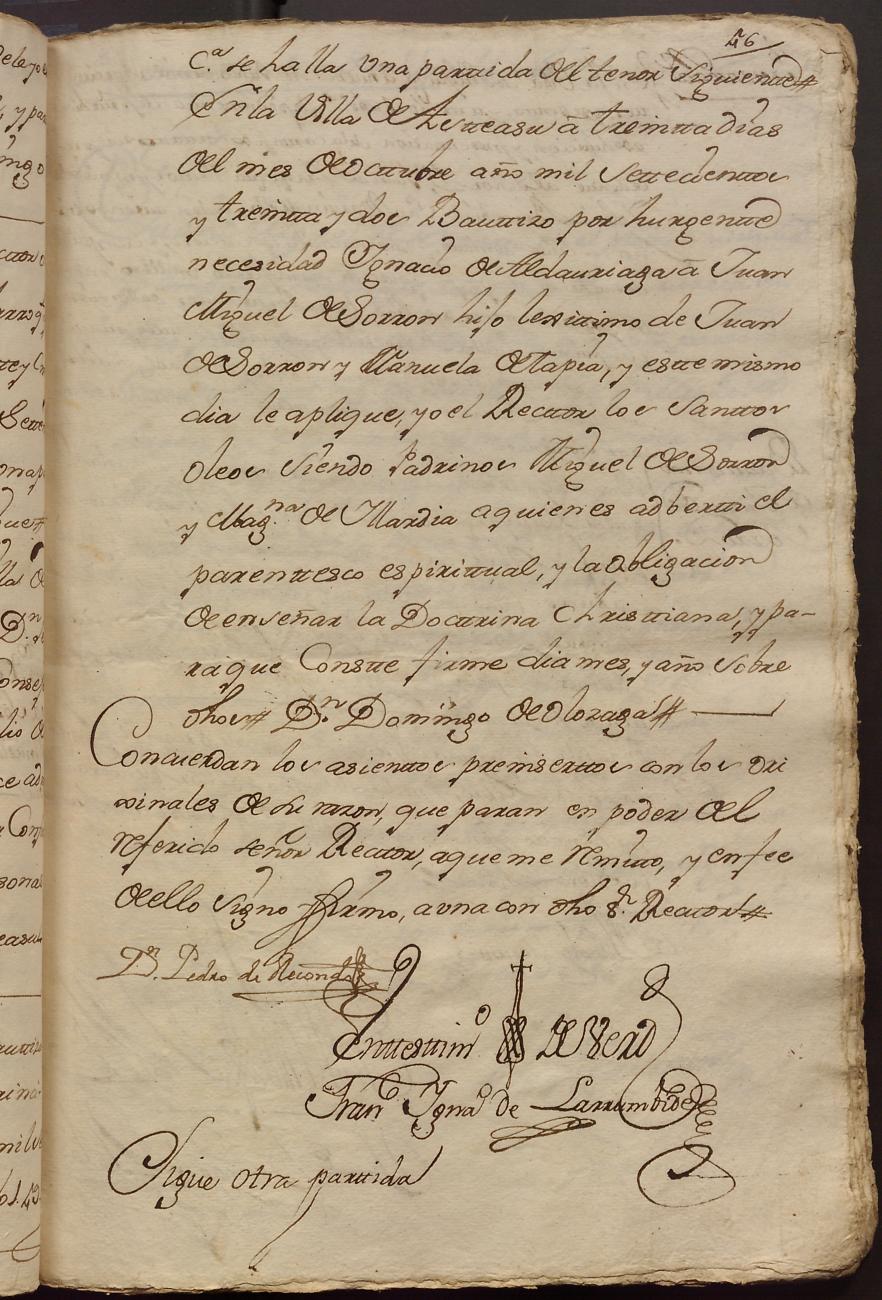 46
c.ª se halla una parttida del tenor siguientte#
En la Villa de Asteasu â treintta dias
del mes de octtubre año mil settecienttos
y treintta y dos Bauttizo por hurgentte
necesidad Ygnacio de Aldauriaga â Juan
Miguel de Sorron hijo lexittimo de Juan
de Sorron y Manuela de Tapia, y estte mismo
dia le aplique, yo el Recttor los Santtos
oleos siendo Padrinos Miguel de Sorron
y Mag.na de Mardia aquienes adbertti el
parenttesco espirittual, y la obligacion
de enseñar la Docttrina Christtiana, y pa-
raque Constte firme dia mes, y año sobre
dhos# D.n Domingo de Olozaga#
Concuerdan los asienttos preinserttos con los ori
xinales de su razon, que paran en poder del
referido señor Recttor, aque me remitto, y en fee
de ello signo y firmo, a una con dho S.r Recttor#
D.n Pedro de Recondo
En ttesttim.º de Verd
Fran.co Ygna.º de Larrumbide
Sigue otra parttida